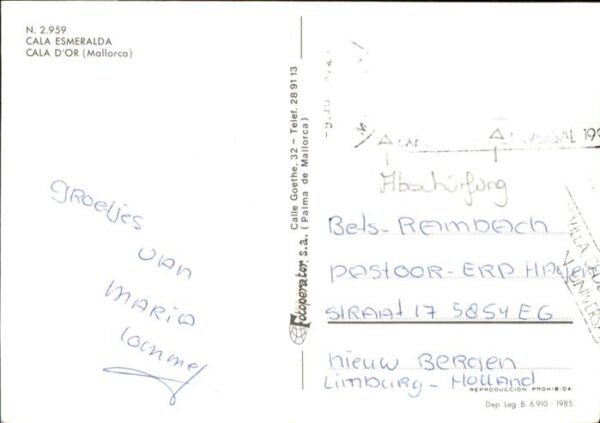 N. 2.959
CALA ESMERALDA
CALA D'OR (Mallorca)
Groetjes
van
Maria
Fotoperator, s.a. Calle Goethe, 32 - Telef. 28 91 13
(Palma de Mallorca)
Abschürfung
Bels-Rambach
Pastoor-ERP Hagen
straat 17 5854 EG
Nieuw Bergen
Limburg - Holland
REPRODUCCION PROHIBIDA
Dep. Leg. B. 6.910 - 1985